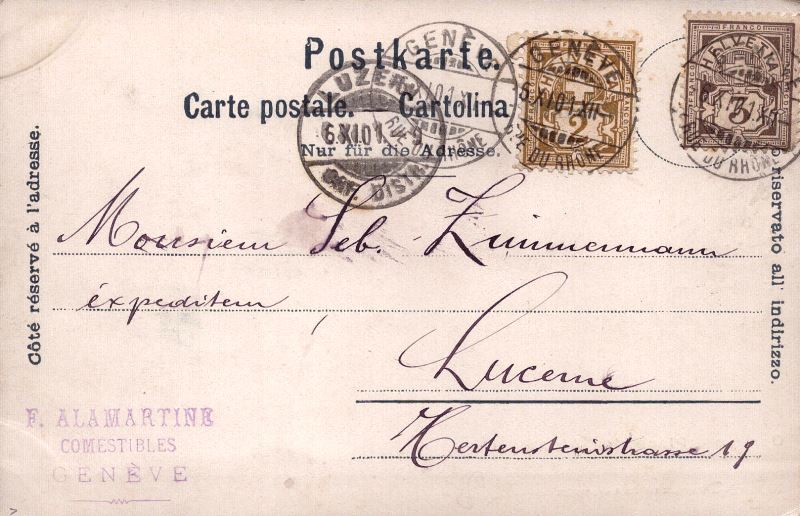 Postkarte.
Carte postale. Cartolina
Nur für die Adresse.
Côté réservé à l'adresse.
riservato all' indirizzo.
GENÈVE
6 XI 01 XII
RUE DU RHÔNE
2
FRANCO
HELVETIA
3
LUZERN
6 XI 01 9
BRF. DISTR.
Monsieur Seb. Zimmermann
éxpediteur
Lucerne
Hertensteinstrasse 19
F. ALAMARTINE
COMESTIBLES
GENÈVE